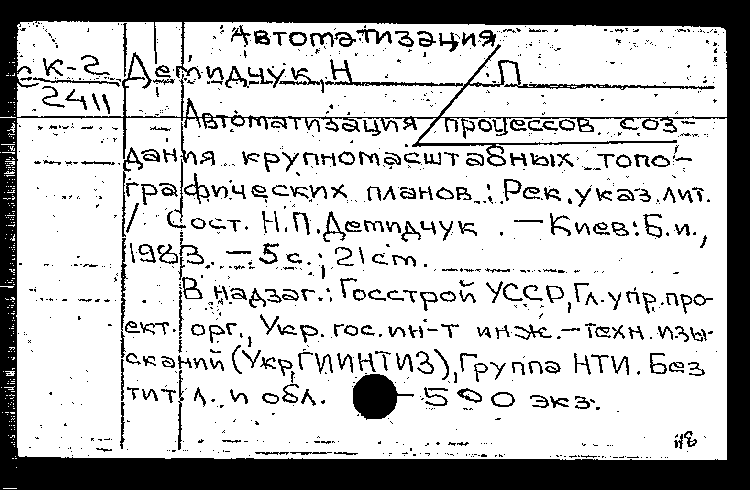 Автоматизация
К-2 Демидчук, Н П
2411
Автоматизация процессов соз-
дания крупномасштабных топо-
графических планов: Рек. указ. лит.
/ Сост. Н.П. Демидчук. — Киев: Б.и.,
1983. — 5 с.; 21 cm.
В надзаг.: Госстрой УССР, Гл. упр. про-
ект. орг., Укр. гос. ин-т инж.-техн. изы-
сканий (УкрГИИНТИЗ), Группа НТИ. Без
тит. л. и обл. — 500 экз.